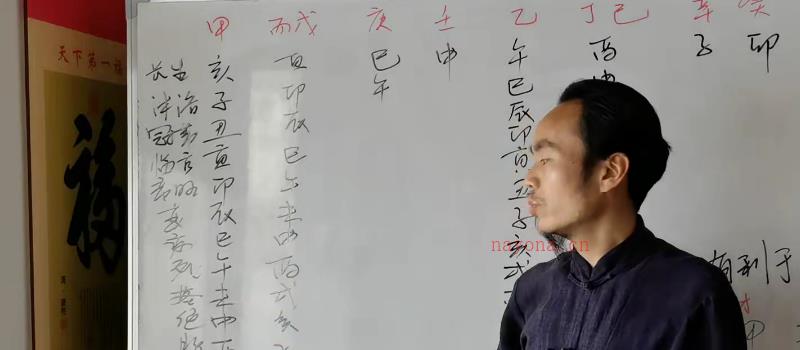 甲 丙戊 庚 壬 乙 丁己 辛 癸
天下第一福
福
长生
沐浴
冠带
临官
衰
病
死
墓
绝
胎
亥
子
丑
寅
卯
辰
巳
午
未
申
寅
卯
辰
巳
午
未
申
酉
戌
亥
巳
午
申
午
巳
辰
卯
寅
丑
子
亥
戌
酉
申
子
卯
nayona.cn
有利于
甲